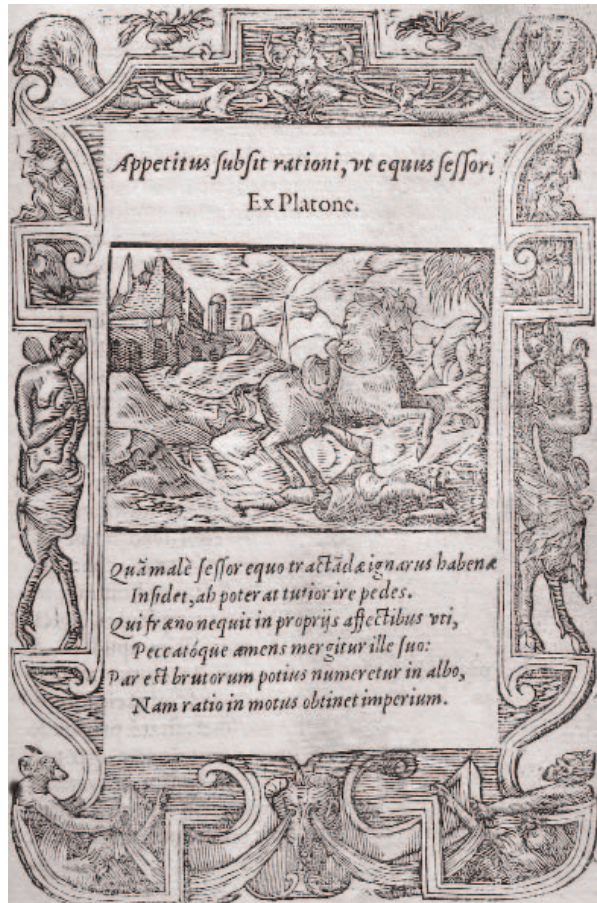 Appetitus subsit rationi, vt equus sessori
Ex Platone.
Quã malè sessor equo tractãdæ ignarus habenæ
Insidet, ah poterat tutior ire pedes.
Qui fræno nequit in proprijs affectibus vti,
Peccatóque amens mergitur ille suo:
Par est brutorum potius numeretur in albo,
Nam ratio in motus obtinet imperium.